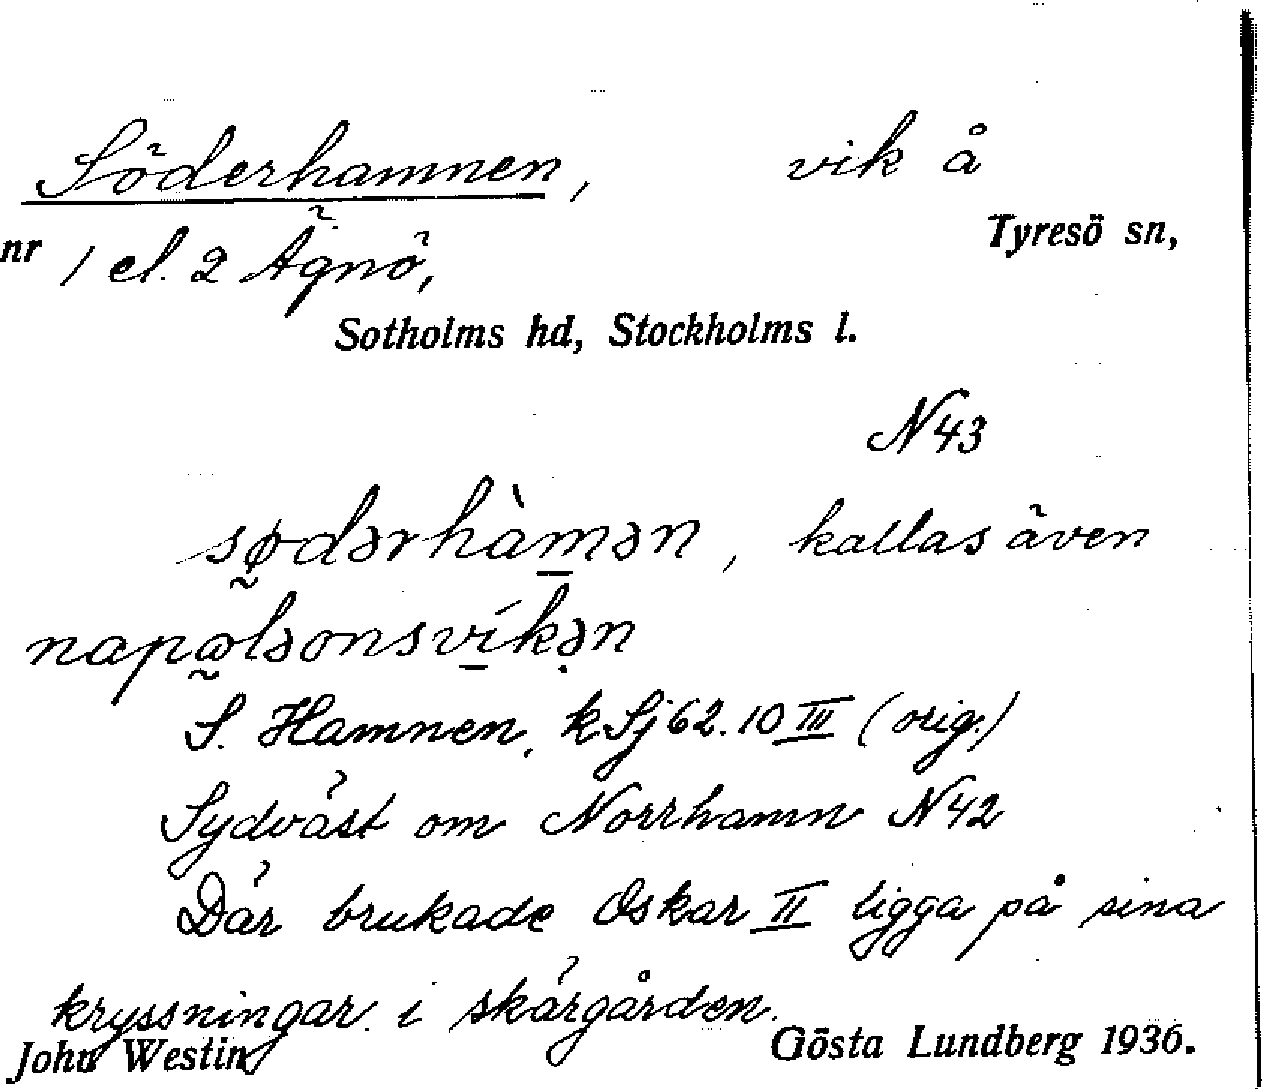 Söderhamnen, vik å
Tyresö sn,
nr 1 el. 2 Ägnö,
Sotholms hd, Stockholms l.
N 43
sø̰dərhàm̲ən, kallas även
napo̰ləonsví̲kə̣n
S. Hamnen, k Sj 62.10 III (orig.)
Sydväst om Norrhamn N 42
Där brukade Oskar II ligga på sina
kryssningar i skärgården.
John Westin Gösta Lundberg 1936.